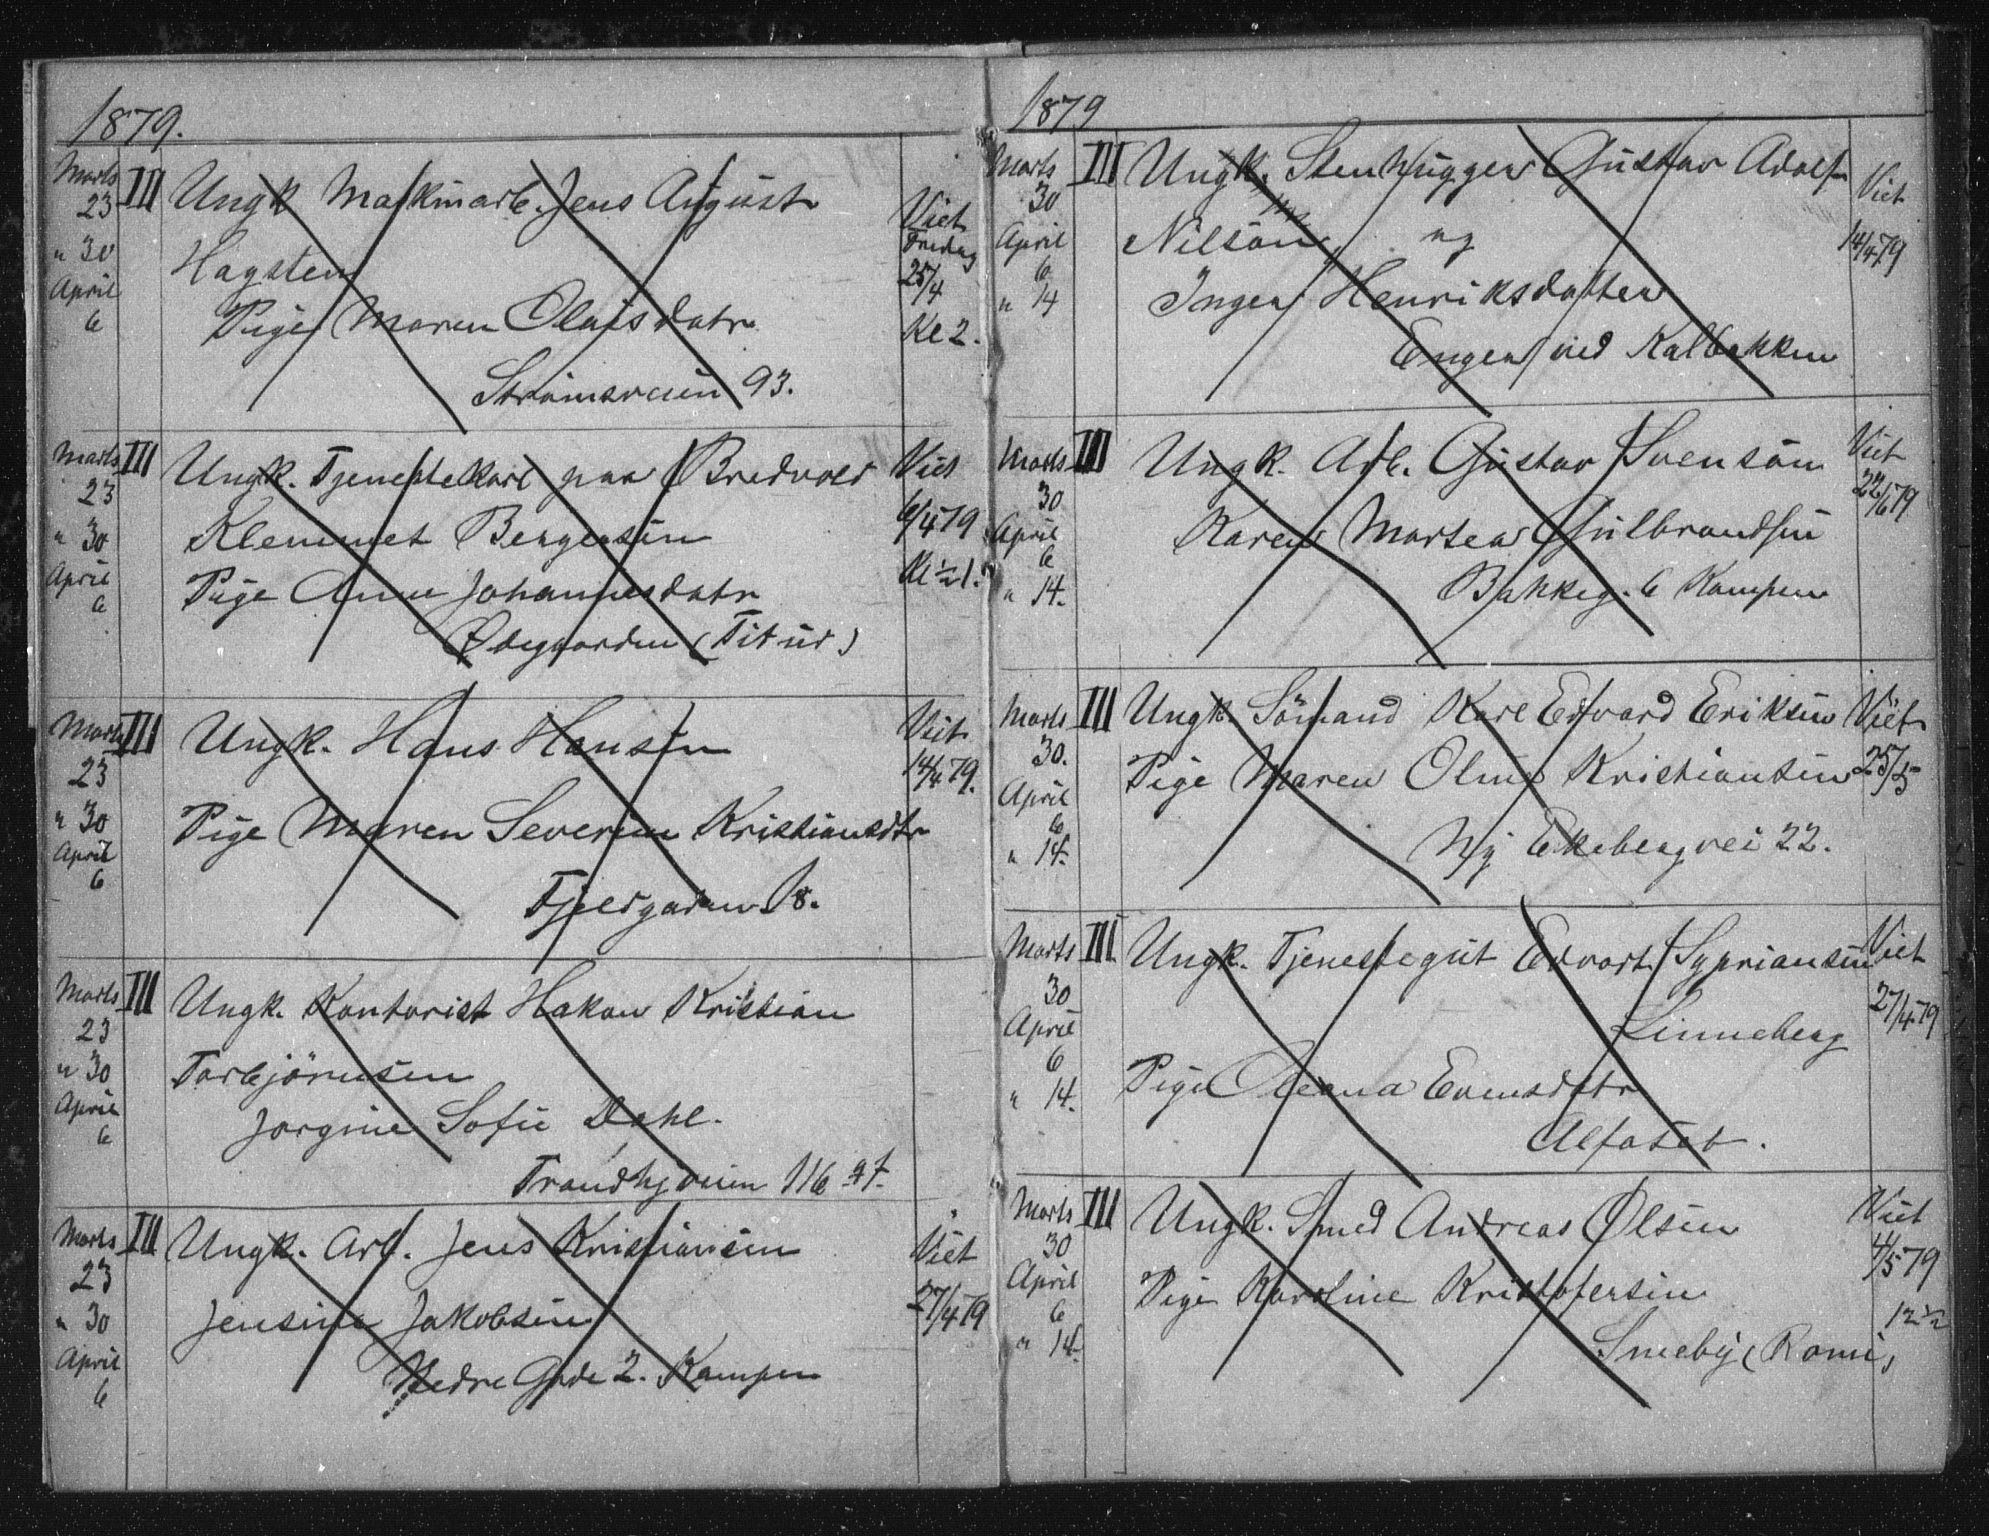 1879.
Marts 23 III Ungk Maskinarb. Jens August Viet
" 30 Hagsten Fredag 25/4
April 6 Pige Maren Olaisdatr Kl 2.
Strømsveien 93.
Marts 23 III Ungk. Tjenestekarl paa Bredvold Viet
" 30 Klemmet Bengensen 6/4 79
April 6 Pige Anne Johannesdatr Kl ½ 1.
Ødegaarden (Titur)
Marts 23 III Ungk. Hans Hansen Viet
" 30 14/4 79.
April 6 Pige Maren Severine Kristiansdtr
Fjeldgaden 18.
Marts 23 III Ungk. Kontorist Hakon Kristian
" 30 Torbjørnsen
April 6 Jørgine Sofie Dahl.
Trondhjveien 116
Marts 23 III Ungk. Arb. Jens Kristiansen Viet
" 30 Jensine Jakobsen 27/4 79
April 6 Nedre Gade 2. Kampen
1879
Marts 30 III Ungk. Stenhugger Gustav Adolf Viet
April 6 Nilsön og 14/4 79
" 14 Inger Henriksdatter
Engen ved Kalbakken
Marts 30 III Ungk. Arb. Gustav Svensön Viet
April 6 Karen Martea Gulbrandsen 22/6 79
" 14. Bakkeg. 6 Kampen
Marts 30. III Ungk. Sömand Karl Edvard Eriksen Viet
April 6 Pige Maren Oline Kristiansen 25/5
" 14. Ny Ekebergvei 22.
Marts 30 III Ungk. Tjenestegut Edvart Sypriansen Viet
April 6 Linneberg 27/4 79
" 14. Pige Oleana Evensdatr
Alfaset.
Marts 30 III Ungk. Smed Andreas Olsen Viet
April 6 Pige Karoline Kristofersen 4/5 79
" 14. Smeby (Romi) 12½